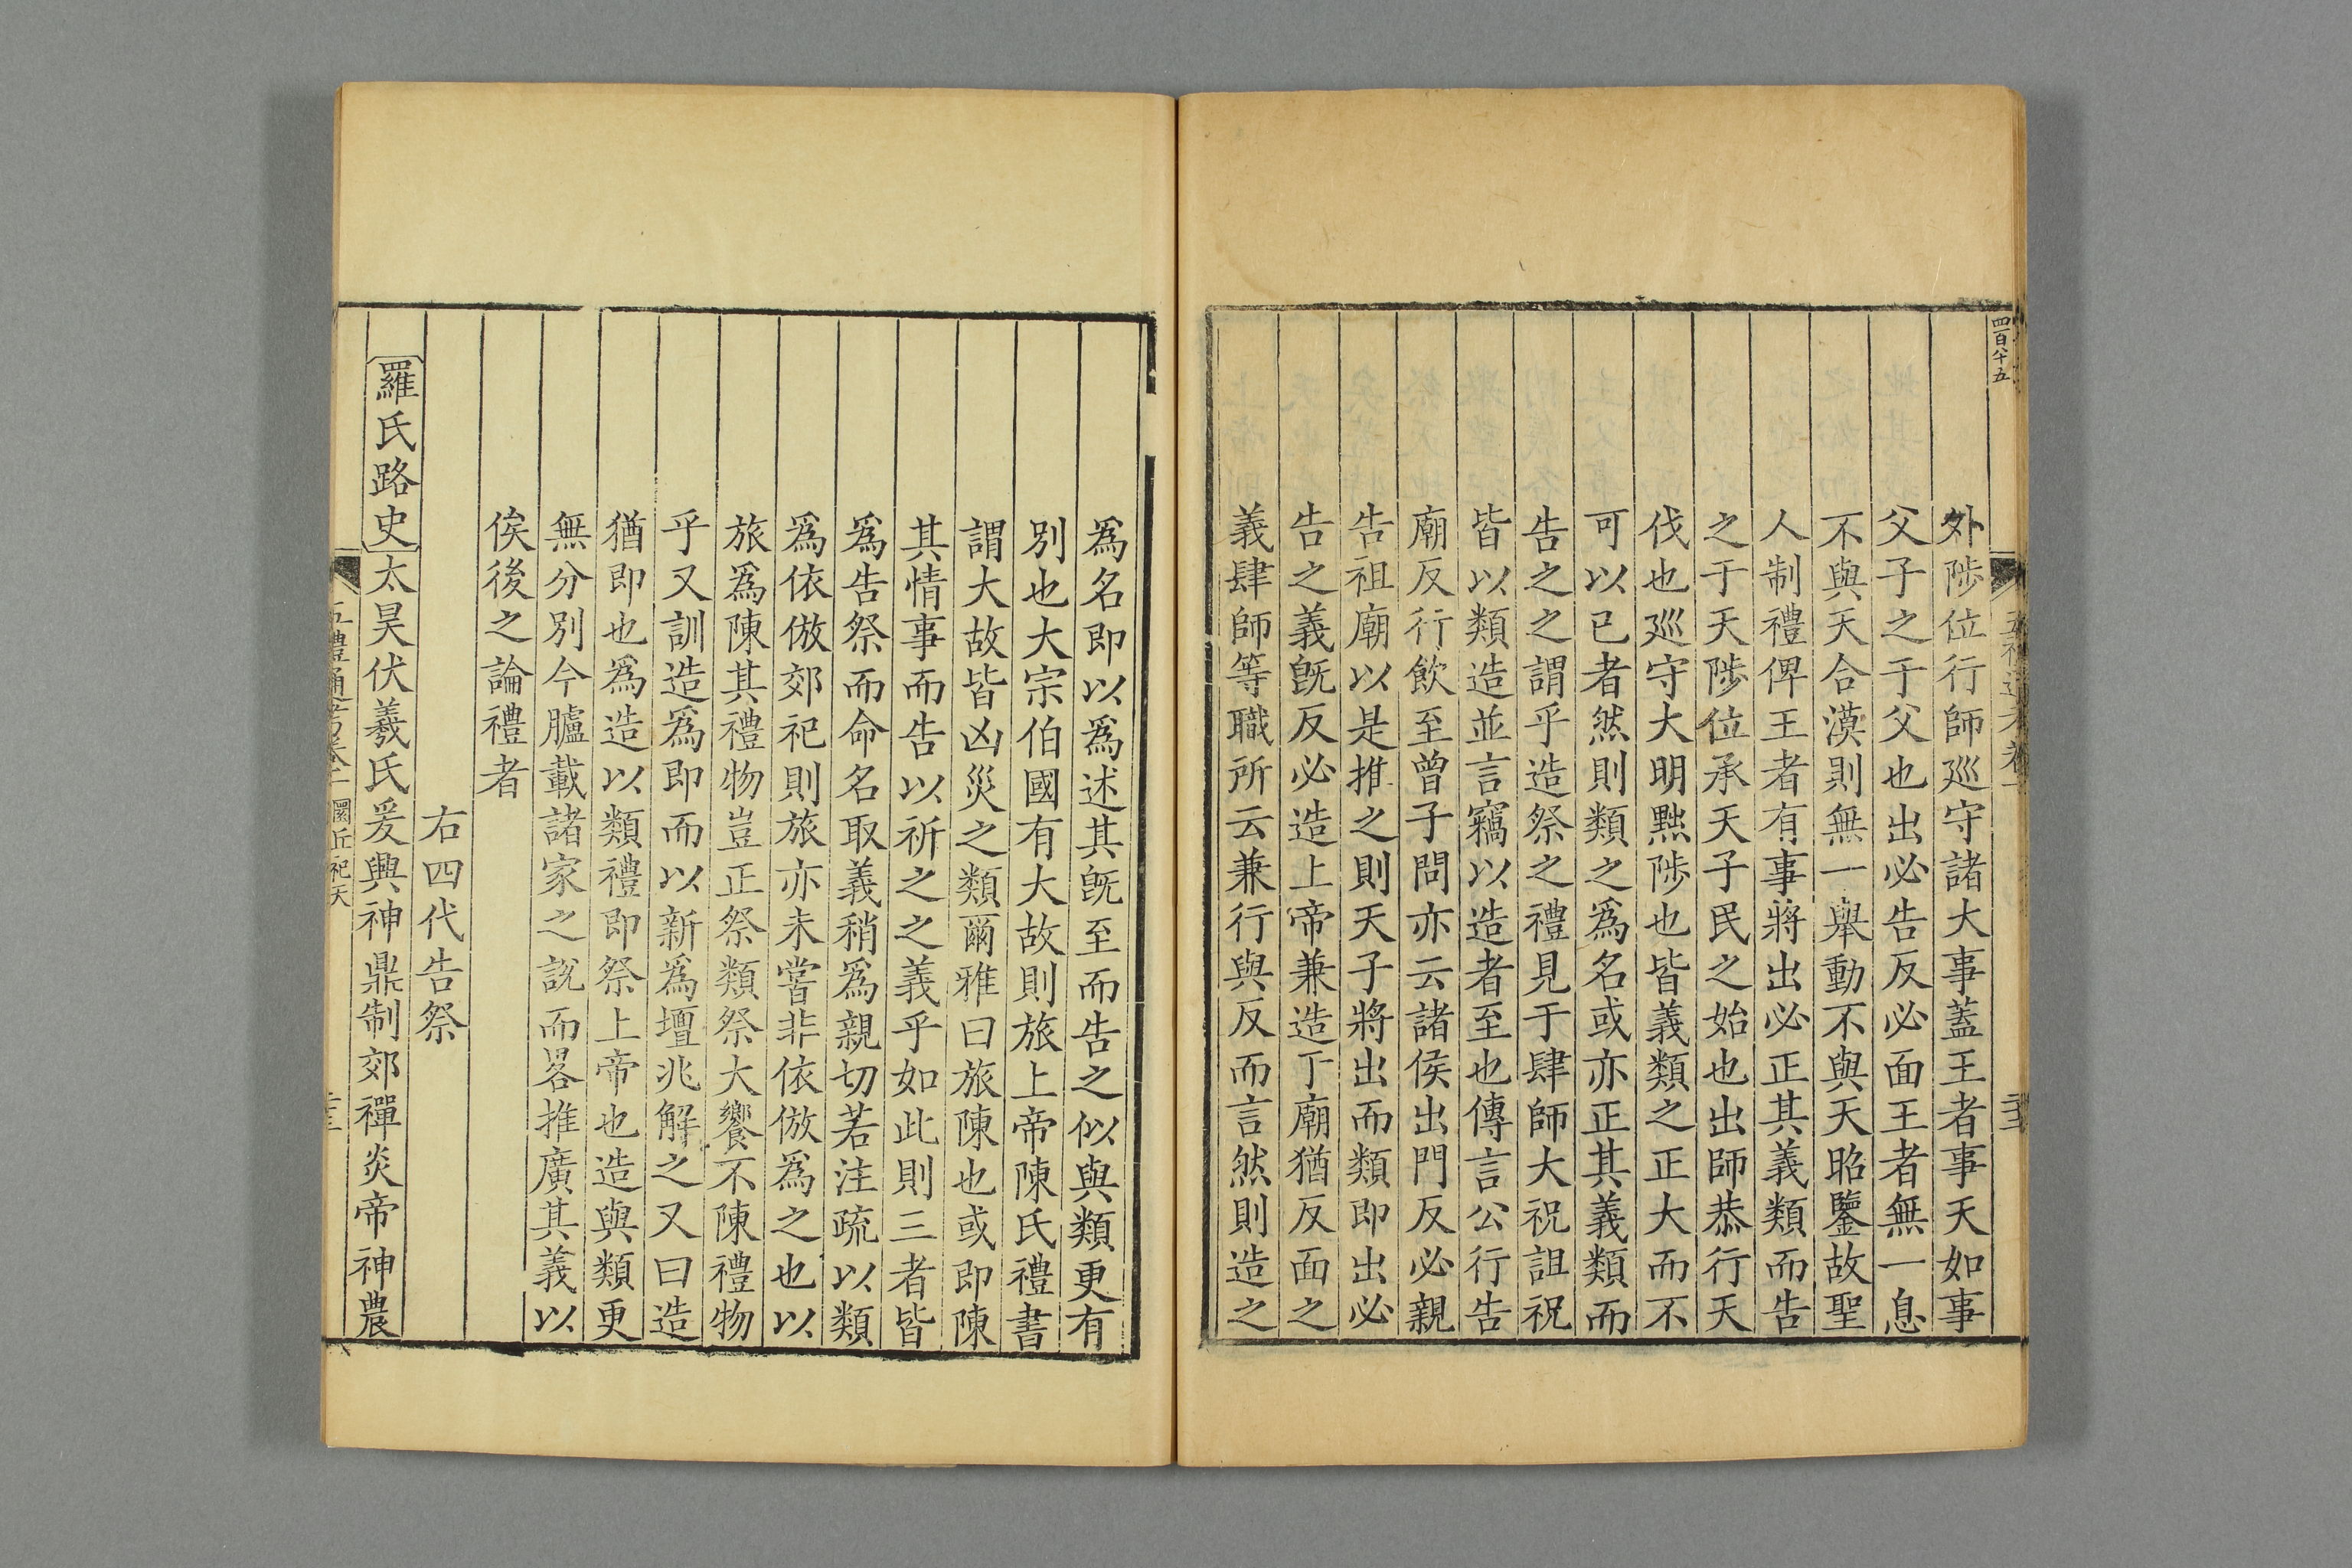 四百八十五
外陟位行師巡守諸大事蓋王者事天如事
父子之于父也出必告反必面王者無一息
不與天合漠則無一舉動不與天昭鑒故聖
人制禮俾王者有事將出必正其義類而告
之于天陟位承天子民之始也出師恭行天
伐也巡守大明黜陟也皆義類之正大而不
可以已者然則類之爲名或亦正其義類而
告之之謂乎造祭之禮見于肆師大祝詛祝
皆以類造並言竊以造者至也傳言公行告
廟反行飲至曾子問亦云諸侯出門反必親
告祖廟以是推之則天子將出而類即出必
告之義旣反必造上帝兼造丁廟猶反面之
義肆師等職所云兼行與反而言然則造之
爲名即以爲述其旣至而告之似與類更有
別也大宗伯國有大故則旅上帝陳氏禮書
謂大故皆凶災之類爾雅曰旅陳也或即陳
其情事而告以祈之之義乎如此則三者皆
爲告祭而命名取義稍爲親切若注疏以類
爲依倣郊祀則旅亦未嘗非依倣爲之也以
旅爲陳其禮物豈正祭類祭大饗不陳禮物
乎又訓造爲即而以新爲壇兆解之又曰造
猶即也爲造以類禮即祭上帝也造與類更
無分別今臚載諸家之說而畧推廣其義以
俟後之論禮者
右四代告祭
羅氏路史太昊伏羲氏爰興神鼎制郊禪炎帝神農
五禮通考卷二 圜丘祀天